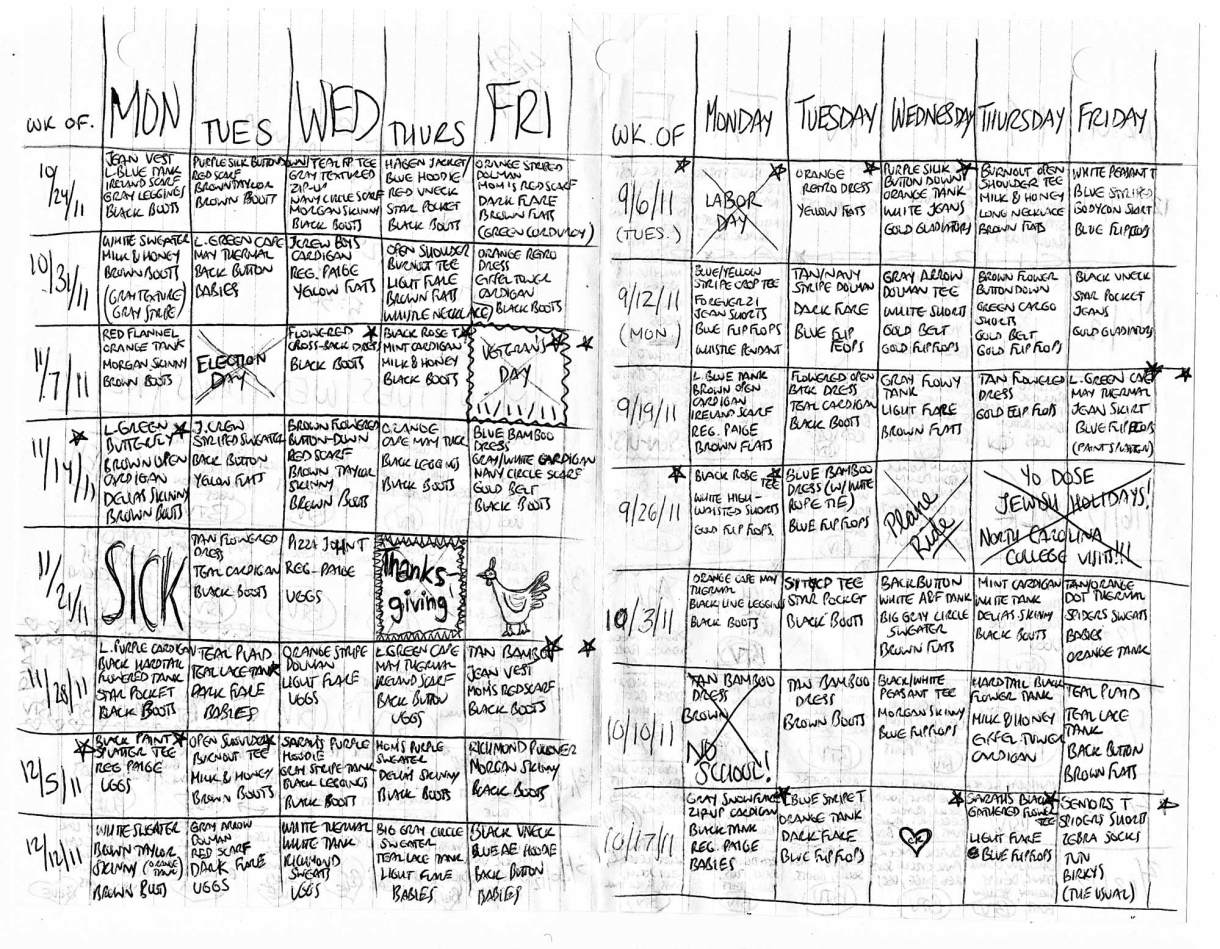 WK OF.
MON
TUES
WED
THURS
FRI
10/24/11
JEAN VEST
L.BLUE TANK
IRELAND SCARF
GRAY LEGGINGS
BLACK BOOTS
PURPLE SILK BUTTONDOWN
RED SCARF
BROWN TAYLOR
BROWN BOOTS
/TEAL FP TEE
GRAY TEXTURED
ZIP-UP
NAVY CIRCLE SCARF
MORGAN SKINNY
BLACK BOOTS
HAGEN JACKET/
BLUE HOODIE
RED VNECK
STAR POCKET
BLACK BOOTS
ORANGE STRIPED
DOLMAN
MOM'S RED SCARF
DARK FLARE
BROWN FLATS
(GREEN CORDUROY)
10/31/11
WHITE SWEATER
MILK & HONEY
BROWN BOOTS
(GRAY TEXTURE)
(GRAY STRIPE)
L.GREEN CAPE
MAY THERMAL
BACK BUTTON
BABIES
JCREW BOYS
CARDIGAN
REG. PAIGE
YELLOW FLATS
OPEN SHOULDER
BURNOUT TEE
LIGHT FLARE
BROWN FLATS
WHISTLE NECKLACE
ORANGE RETRO
DRESS
EIFFEL TOWER
CARDIGAN
BLACK BOOTS
11/7/11
RED FLANNEL
ORANGE TANK
MORGAN SKINNY
BROWN BOOTS
ELECTION
DAY
FLOWERED
CROSS-BACK DRESS
BLACK BOOTS
BLACK ROSE T
MINT CARDIGAN
MILK & HONEY
BLACK BOOTS
VETERANS
DAY
11/14/11
L.GREEN
BUTTERFLY
BROWN OPEN
CARDIGAN
DELIAS SKINNY
BROWN BOOTS
J.CREW
STRIPED SWEATER
BACK BUTTON
YELLOW FLATS
BROWN FLOWERED
BUTTON-DOWN
RED SCARF
BROWN TAYLOR
SKINNY
BROWN BOOTS
ORANGE
CAPE MAY
BLACK LEGGINGS
BLACK BOOTS
BLUE BAMBOO
DRESS
GRAY/WHITE CARDIGAN
NAVY CIRCLE SCARF
GOLD BELT
BLACK BOOTS
11/21/11
SICK
TAN FLOWERED
DRESS
TEAL CARDIGAN
BLACK BOOTS
PIZZA JOHN T
REG-PAIGE
UGGS
Thanks-
giving
11/28/11
L.PURPLE CARDIGAN
BLACK HARDTAIL
FLOWERED TANK
STAR POCKET
BLACK BOOTS
TEAL PLAID
TEAL LACE TANK
DARK FLARE
BABIES
ORANGE STRIPE
DOLMAN
LIGHT FLARE
UGGS
L.GREEN CAPE
MAY THERMAL
IRELAND SCARF
BACK BUTTON
UGGS
TAN BAMBOO
JEAN VEST
MOM'S RED SCARF
BLACK BOOTS
12/5/11
BLACK PAINT
SPLATTER TEE
REG PAIGE
UGGS
OPEN SHOULDER
BURNOUT TEE
MILK & HONEY
BROWN BOOTS
SARAH'S PURPLE
HOODIE
GRAY STRIPE TANK
BLACK LEGGINGS
BLACK BOOTS
MOM'S PURPLE
SWEATER
DELIAS SKINNY
BLACK BOOTS
RICHMOND PULLOVER
MORGAN SKINNY
BLACK BOOTS
12/12/11
WHITE SWEATER
BROWN TAYLOR
SKINNY (ORANGE TANK)
BROWN BOOTS
GRAY ARROW
DOLMAN
RED SCARF
DARK FLARE
UGGS
WHITE THERMAL
WHITE TANK
RICHMOND
SWEATS
UGGS
BIG GRAY CIRCLE
SWEATER
TEAL LACE TANK
LIGHT FLARE
BABIES
BLACK VNECK
BLUE AE HOODIE
BACK BUTTON
BABIES
WK. OF
MONDAY
TUESDAY
WEDNESDAY
THURSDAY
FRIDAY
9/6/11
(TUES.)
LABOR
DAY
ORANGE
RETRO DRESS
YELLOW FLATS
PURPLE SILK
BUTTON DOWN
ORANGE TANK
WHITE JEANS
GOLD GLADIATORS
BURNOUT OPEN
SHOULDER TEE
MILK & HONEY
LONG NECKLACE
BROWN FLATS
WHITE PEASANT T
BLUE STRIPED
BODYCON SKIRT
BLUE FLIPFLOPS
9/12/11
(MON.)
BLUE/YELLOW
STRIPE CROP TEE
FOREVER 21
JEAN SHORTS
BLUE FLIPFLOPS
WHISTLE PENDANT
TAN/NAVY
STRIPE DOLMAN
DARK FLARE
BLUE FLIP
FLOPS
GRAY ARROW
DOLMAN TEE
WHITE SHORTS
GOLD BELT
GOLD FLIPFLOPS
BROWN FLOWER
BUTTONDOWN
GREEN CARGO
SHORTS
GOLD BELT
GOLD FLIPFLOPS
BLACK VNECK
STAR POCKET
JEANS
GOLD GLADIATORS
9/19/11
L.BLUE TANK
BROWN OPEN
CARDIGAN
IRELAND SCARF
REG. PAIGE
BROWN FLATS
FLOWERED OPEN
BACK DRESS
TEAL CARDIGAN
BLACK BOOTS
GRAY FLOWY
TANK
LIGHT FLARE
BROWN FLATS
TAN FLOWERED
DRESS
GOLD FLIP FLOPS
L.GREEN CAPE
MAY THERMAL
JEAN SKIRT
BLUE FLIPFLOPS
9/26/11
BLACK ROSE
TEE
WHITE HIGH-
WAISTED SHORTS
GOLD FLIPFLOPS.
BLUE BAMBOO
DRESS (W/WHITE
ROPE TIE)
BLUE FLIPFLOPS
Plane
Ride
YO DOSE
JEWISH HOLIDAYS!
NORTH CAROLINA
COLLEGE VISIT!!!
10/3/11
ORANGE CAPE MAY
THERMAL
BLACK LINE LEGGING
BLACK BOOTS
SYTYCD TEE
STAR POCKET
BLACK BOOTS
BACK BUTTON
WHITE A&F TANK
BIG GRAY CIRCLE
SWEATER
BROWN FLATS
MINT CARDIGAN
WHITE TANK
DELIAS SKINNY
BLACK BOOTS
TAN/ORANGE
DOT THERMAL
SPIDERS SWEATS
BABIES
ORANGE TANK
10/10/11
TAN BAMBOO
DRESS
BROWN
NO
SCHOOL!
TAN BAMBOO
DRESS
BROWN BOOTS
BLACK/WHITE
PEASANT TEE
MORGAN SKINNY
BLUE FLIPFLOPS
HARDTAIL BLACK
FLOWER TANK
MILK & HONEY
EIFFEL TOWER
CARDIGAN
TEAL PLAID
TEAL LACE
TANK
BACK BUTTON
BROWN FLATS
10/17/11
GRAY SNOWFLAKE
ZIPUP CARDIGAN
BLACK TANK
REG. PAIGE
BABIES
BLUE STRIPE T
ORANGE TANK
DARK FLARE
BLUE FLIPFLOPS
SARAH'S BLACK
GATHERED FLOWER
TEE
LIGHT FLARE
BLUE FLIPFLOPS
SENIORS T
SPIDERS SHORTS
ZEBRA SOCKS
TUTU
BIRKYS
(THE USUAL)